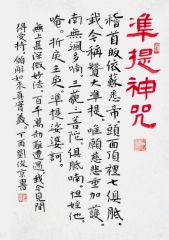 準提神咒
稽首皈依蘇悉帝。頭面頂禮七俱胝。
我今稱讚大準提。唯願慈悲垂加護。
南無颯哆喃。三藐三菩陀。俱胝喃。怛姪他。
唵。折戾主戾。準提娑婆訶。
無上甚深微妙法。百千萬劫難遭遇。我今見聞
得受持。願解如來真實義。丁酉劉俊京書